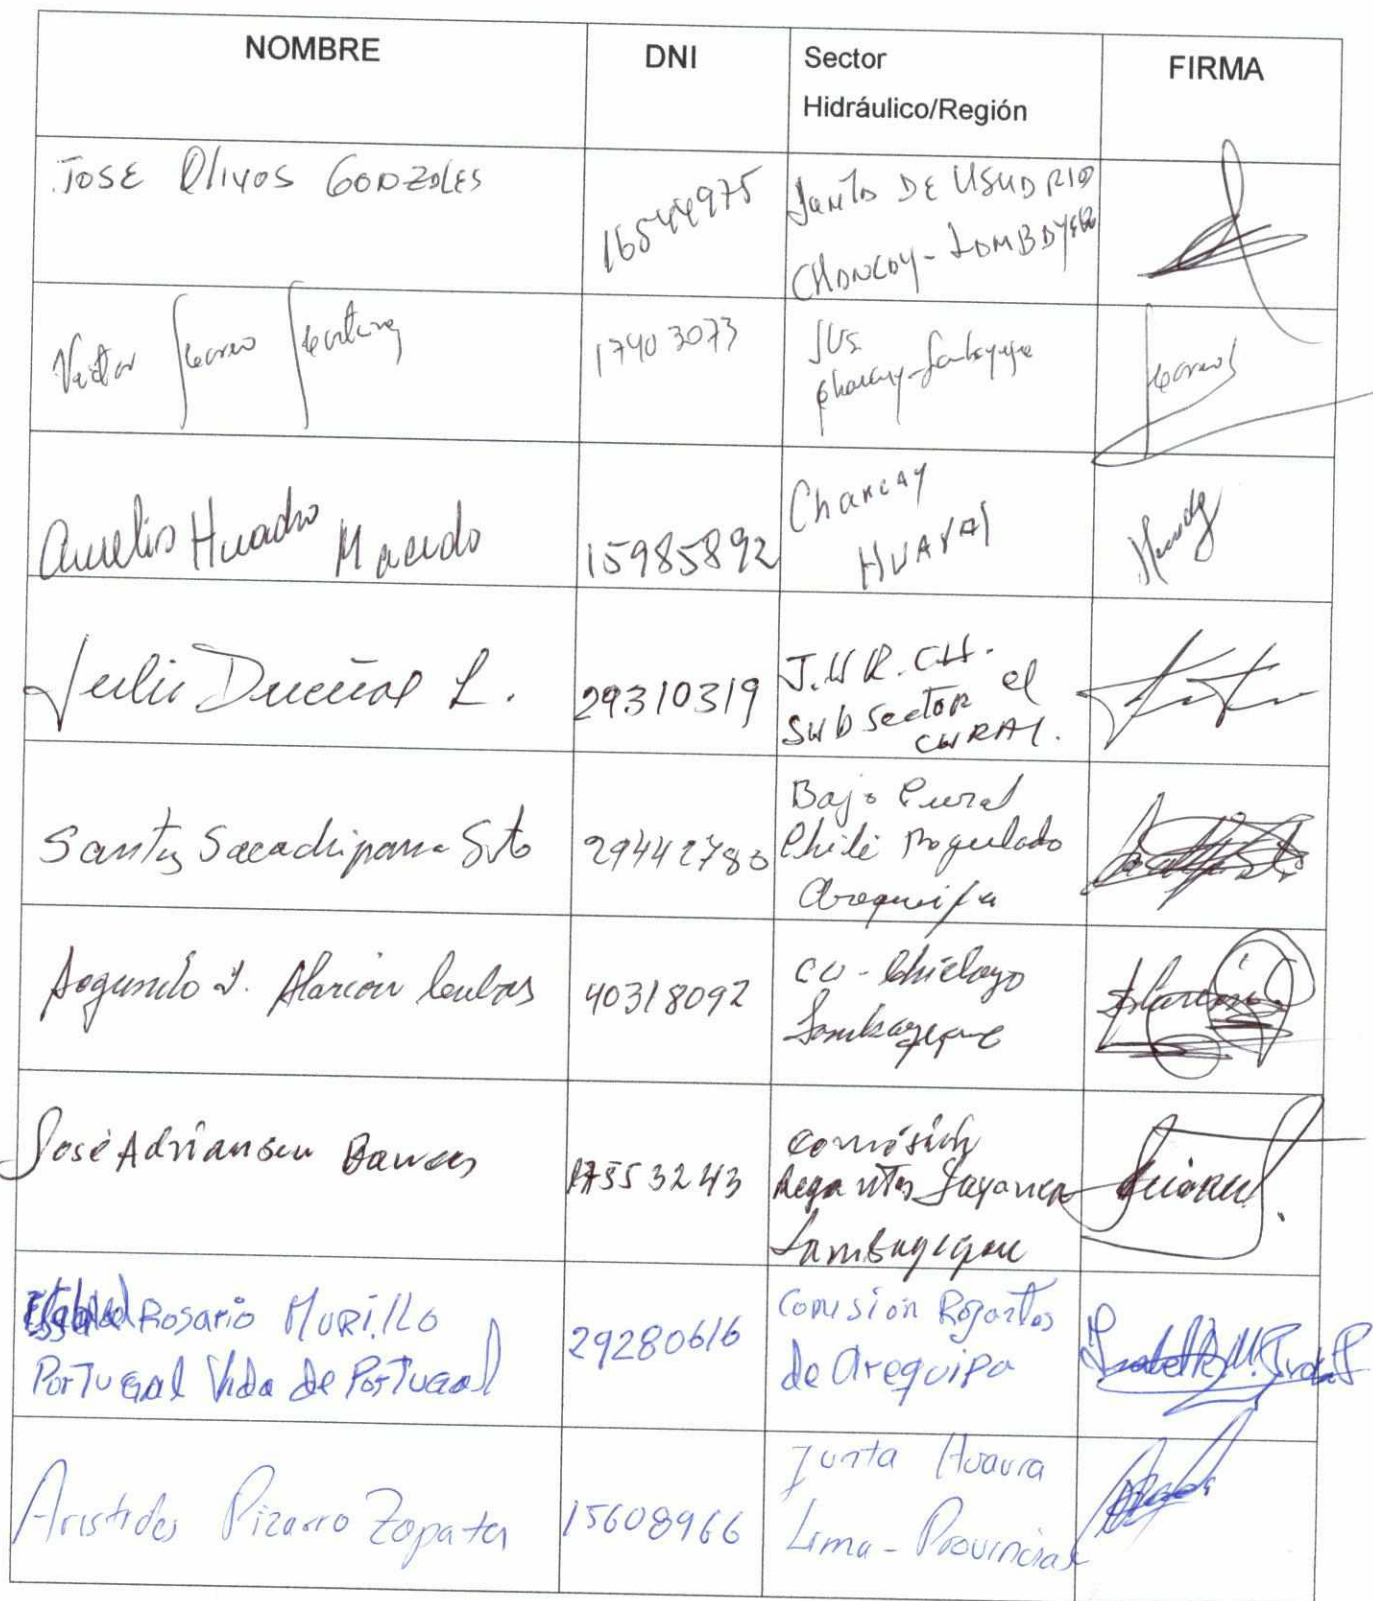 NOMBRE DNI Sector Hidráulico/Región FIRMA
JOSE Olivos GONZALES 16544975 Junta DE USUARIO
CHANCAY - LAMBAYEQUE
Victor 17403073 JUS
Chancay-Lambayeque
Aurelio Huadro Macedo 15985892 Chancay
HUARAL
Julio Dueñas L. 29310319 J.U.R.CH.
SUB Sector el
CURAL.
Santos Sacachipana Soto 29442780 Bajo Cural
Chili Regulado
Arequipa
Segundo J. Alarcon Cubas 40318092 CU - Chiclayo
Lambayeque
José Adriansen Bances 17553243 Comisión
Regantes Jayanca
Lambayeque
Rosario MURILLO 29280616 Comision Regantes
Portugal Vida de Portugal de Arequipa
Aristides Pizarro Zapata 15608966 Junta Huaura
Lima - Provincias